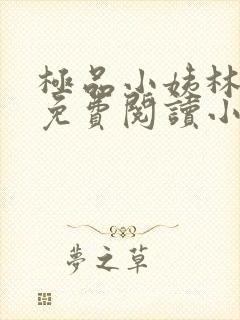 極品小姨林
免費閱讀小
夢之草